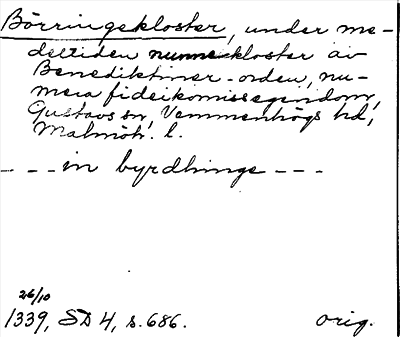 Börringekloster, under me-
deltiden nunnekloster av
Benediktiner-orden, nu-
mera fideikomissegendom,
Gustavs sn, Vemmenhögs hd,
Malmöh. l.
- - - in byrdhinge - - -
26/10
1339, SD 4, s. 686. orig.